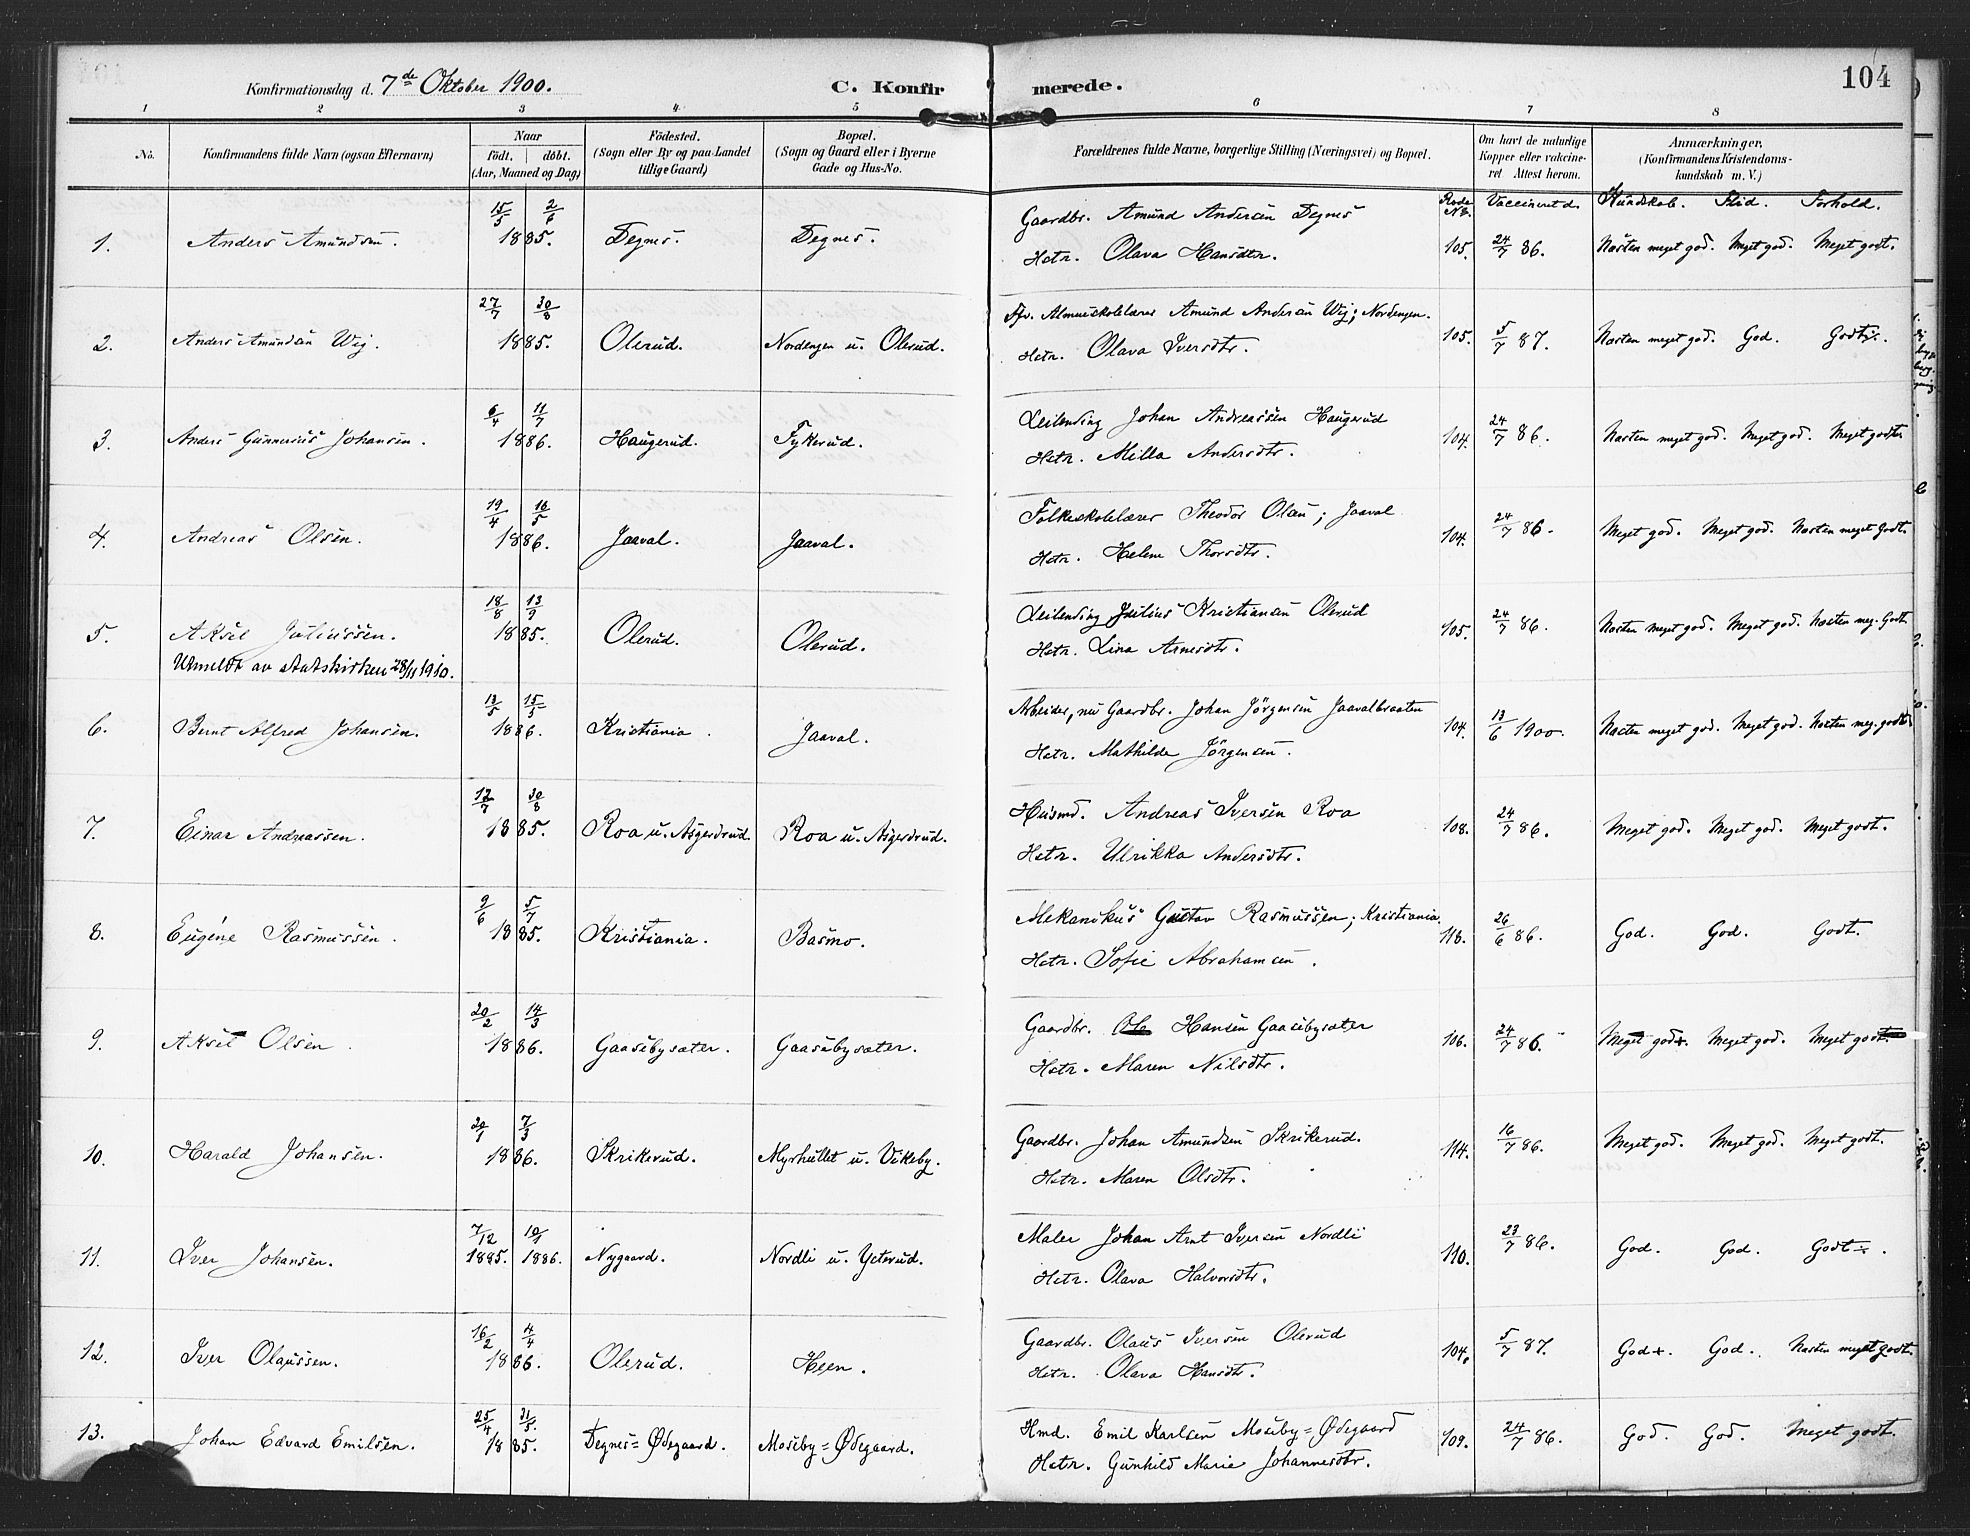 104
Konfirmationsdag d. 7de Oktober 1900.
C. Konfirmerede.
1 2 3 4 5 6 7 8
No.
Konfirmandens fulde Navn (ogsaa Efternavn)
Naar
födt. | døbt.
(Aar, Maaned og Dag)
Födested.
(Sogn eller By og paa Landet
tillige Gaard)
Bopæl.
(Sogn og Gaard eller i Byerne
Gade og Hus-No.
Forældrenes fulde Navne, borgerlige Stilling (Næringsvei) og Bopæl.
Om havt de naturlige
Kopper eller vakcine-
ret Attest herom.
Anmærkninger,
(Konfirmandens Kristendoms-
kundskab m. V.)
Rode No. Vaccineret d. Kundskab. Flid. Forhold.
1. Anders Amundsen. 15/5 2/6 1885. Degnes. Degnes. Gaardbr. Amund Andersen Degnes 105. 24/7 86. Næsten meget god. Meget god. Meget godt.
Hstr. Olava Hansdtr.
2. Anders Amundsen Wig. 27/7 30/8 1885. Olerud. Nordengen u. Olerud. Fhv. Almueskolelærer Amund Andersen Wig; Nordengen. 105. 5/7 87. Næsten meget god. God. Godt.
Hstr. Olava Iversdtr.
3. Anders Gunnerius Johansen. 6/4 11/7 1886. Haugerud. Fykerud. Leilending Johan Andreassen Haugerud 104. 24/7 86. Næsten meget god. Meget god. Meget godt.
Hstr. Milla Andersdtr.
4. Andreas Olsen. 19/4 16/5 1886. Jaaval. Jaaval. Folkeskolelærer Theodor Olsen; Jaaval 104. 24/7 86. Meget god. Meget god. Næsten meget Godt.
Hstr. Helene Thorsdtr.
5. Aksel Juliussen. 18/8 13/9 1885. Olerud. Olerud. Leilending Julius Kristiansen Olerud 105. 24/7 86. Næsten meget god. Meget god. Næsten meg. Godt
Utmeldt av statskirken 28/11 1910. Hstr. Lina Arnesdtr.
6. Bernt Alfred Johansen. 13/5 15/5 1886. Kristiania. Jaaval. Arbeider, nu Gaardbr. Johan Jörgensen Jaavalbraaten 104. 13/6 1900. Næsten meget god. Meget god. Næsten meg. godt
Hstr. Mathilde Jörgensen.
7. Einar Andreassen. 12/7 30/8 1885. Roa u. Asgerdrud. Roa u. Asgerdrud. Husmd. Andreas Iversen Roa 108. 24/7 86. Meget god. Meget god. Meget godt.
Hstr. Ulrikka Andersdtr.
8. Eugéne Rasmussen. 9/6 5/7 1885. Kristiania. Basmo. Mekanikus Gustav Rasmussen; Kristiania. 118. 26/6 86. God. God. Godt.
Hstr. Sofie Abrahamsen.
9. Aksel Olsen. 20/2 14/3 1886. Gaasebysæter. Gaasebysæter. Gaardbr. Ole Hansen Gaasebysæter 106. 24/7 86. Meget god. Meget god. Meget godt.
Hstr. Maren Nilsdtr.
10. Harald Johansen. 20/1 7/3 1886. Skrikerud. Myrhullet u. Vikeby. Gaardbr. Johan Amundsen Skrikerud. 114. 16/7 86. Meget god. Meget god. Meget godt.
Hstr. Maren Olsdtr.
11. Iver Johansen. 7/12 1885. 10/1 1886. Nygaard. Nordli u. Ysterud. Maler Johan Arnt Iversen Nordli 110. 23/7 86. God. God. Godt÷.
Hstr. Olava Halvorsdtr.
12. Iver Olaussen. 16/2 4/4 1886. Olerud. Heen. Gaardbr. Olaus Iversen Olerud 104. 5/7 87. God+. God. Næsten meget godt.
Hstr. Olava Hansdtr.
13. Johan Edvard Emilsen. 25/4 31/5. 1885. Degnes=Ødegaard. Moseby=Ødegaard. Hmd. Emil Karlsen Moseby=Ødegaard 109. 24/7 86. God. God. Meget godt.
Hstr. Gunhild Marie Johannesdtr.